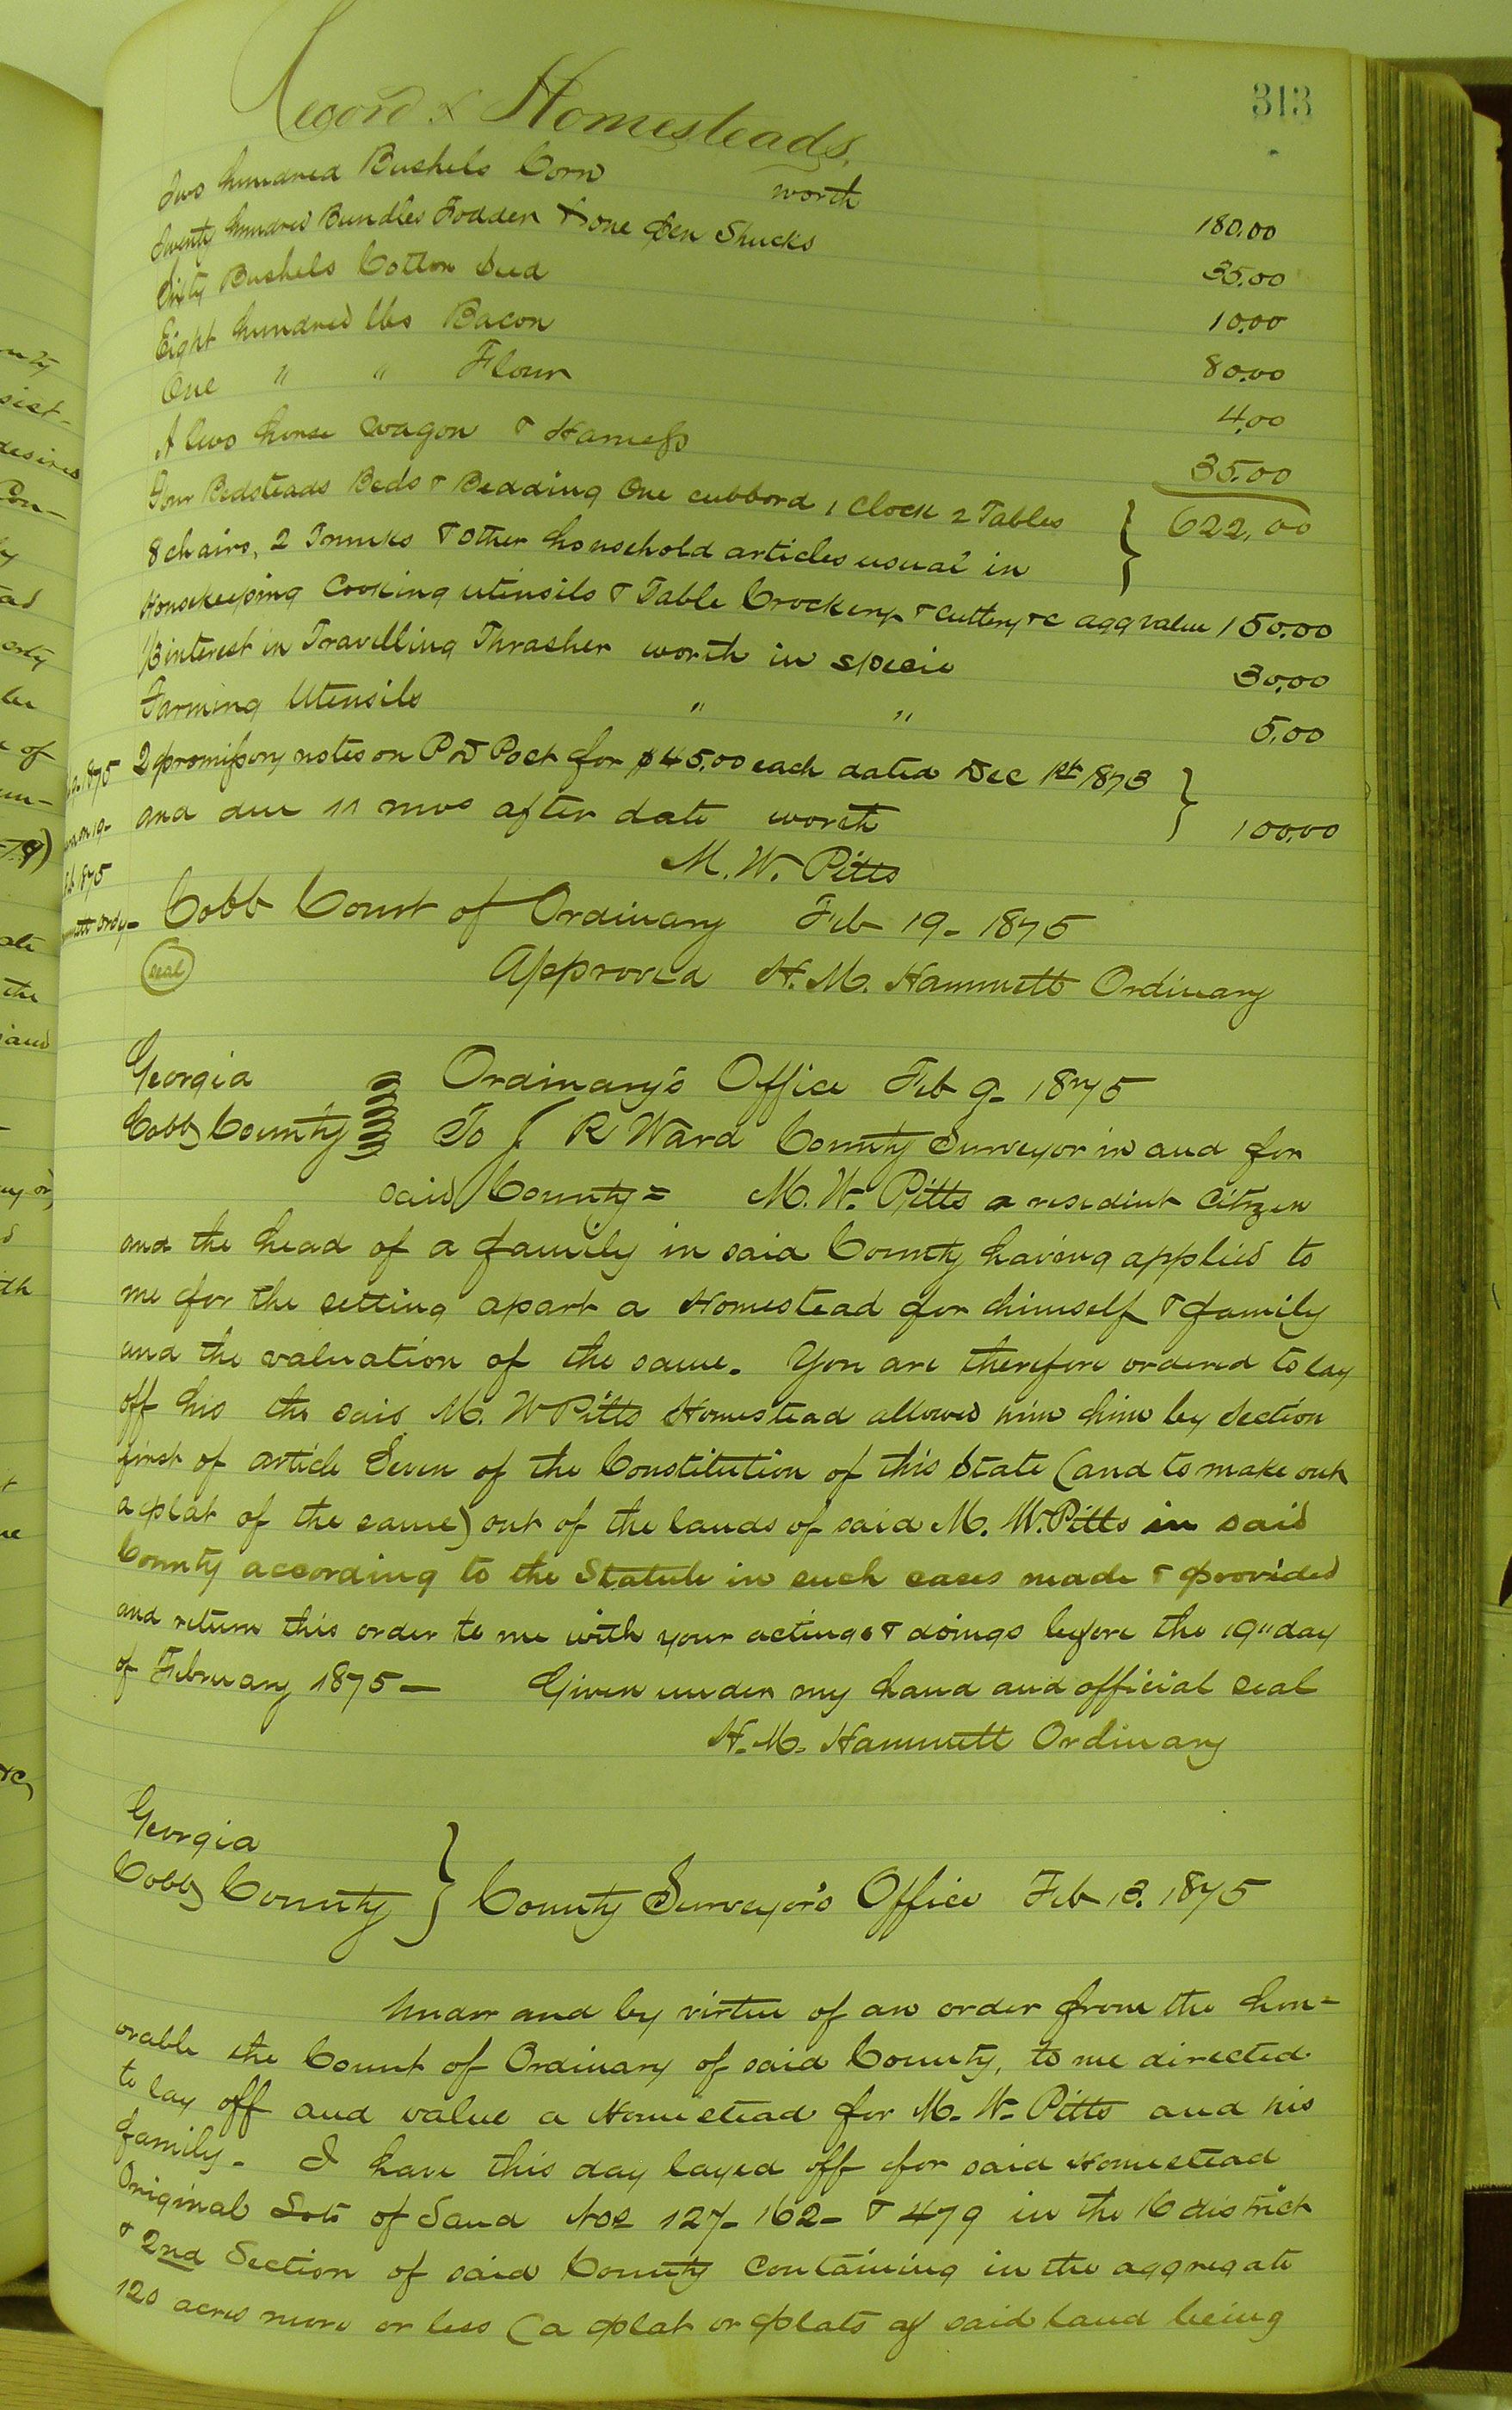 313
Record of Homesteads.
Two hundred Bushels Corn worth 180.00
Twenty hundred Bundles Fodder & one Pen Shucks 35.00
Sixty Bushels Cotton Seed 10.00
Eight hundred lbs Bacon 80.00
One " " Flour 4.00
A two horse wagon & Harness 35.00
622,00
Four Bedsteads Beds & Bedding One cubbord 1 Clock 2 Tables
8 chairs, 2 Trunks & other household articles usual in
Housekeeping Cooking utensils & Table Crockery & Cutlery &c agg value 150.00
1/3 interest in Travelling Thrasher worth in specie 30.00
Farming Utensils " " 5.00
2 promissory notes on P D Poer for $45.00 each dated Dec 1st 1873
and due 11 mos after date worth 100.00
M. W. Pitts
Cobb Court of Ordinary Feb 19- 1875
seal Approved H. M. Hammett Ordinary
Georgia Ordinary's Office Feb 9- 1875
Cobb County To J R Ward County Surveyor in and for
said County = M. W. Pitts a resedint Citizen
and the head of a family in said County having applied to
me for the setting apart a Homestead for himself & family
and the valuation of the same. You are therefore ordered to lay
off his the said M. W Pitts Homestead allowed him him by Section
first of article Seven of the Constitution of this State (and to make out
a plat of the same) out of the lands of said M. W. Pitts in said
County according to the Statute in such cases made & provided
and return this order to me with your actings & doings before the 19" day
of February 1875 — Given under my hand and official seal
H. M. Hammett Ordinary
Georgia
Cobb County } County Surveyor's Office Feb 13. 1875
Under and by virtue of an order from the hon=
orable the Court of Ordinary of said County, to me directed
to lay off and value a Homestead for M. W. Pitts and his
family- I have this day layed off for said Homestead
Original Lots of Land Nos 127- 162- & 479 in the 16 district
& 2nd Section of said County Containing in the aggregate
120 acres more or less (a plat or plats of said land being